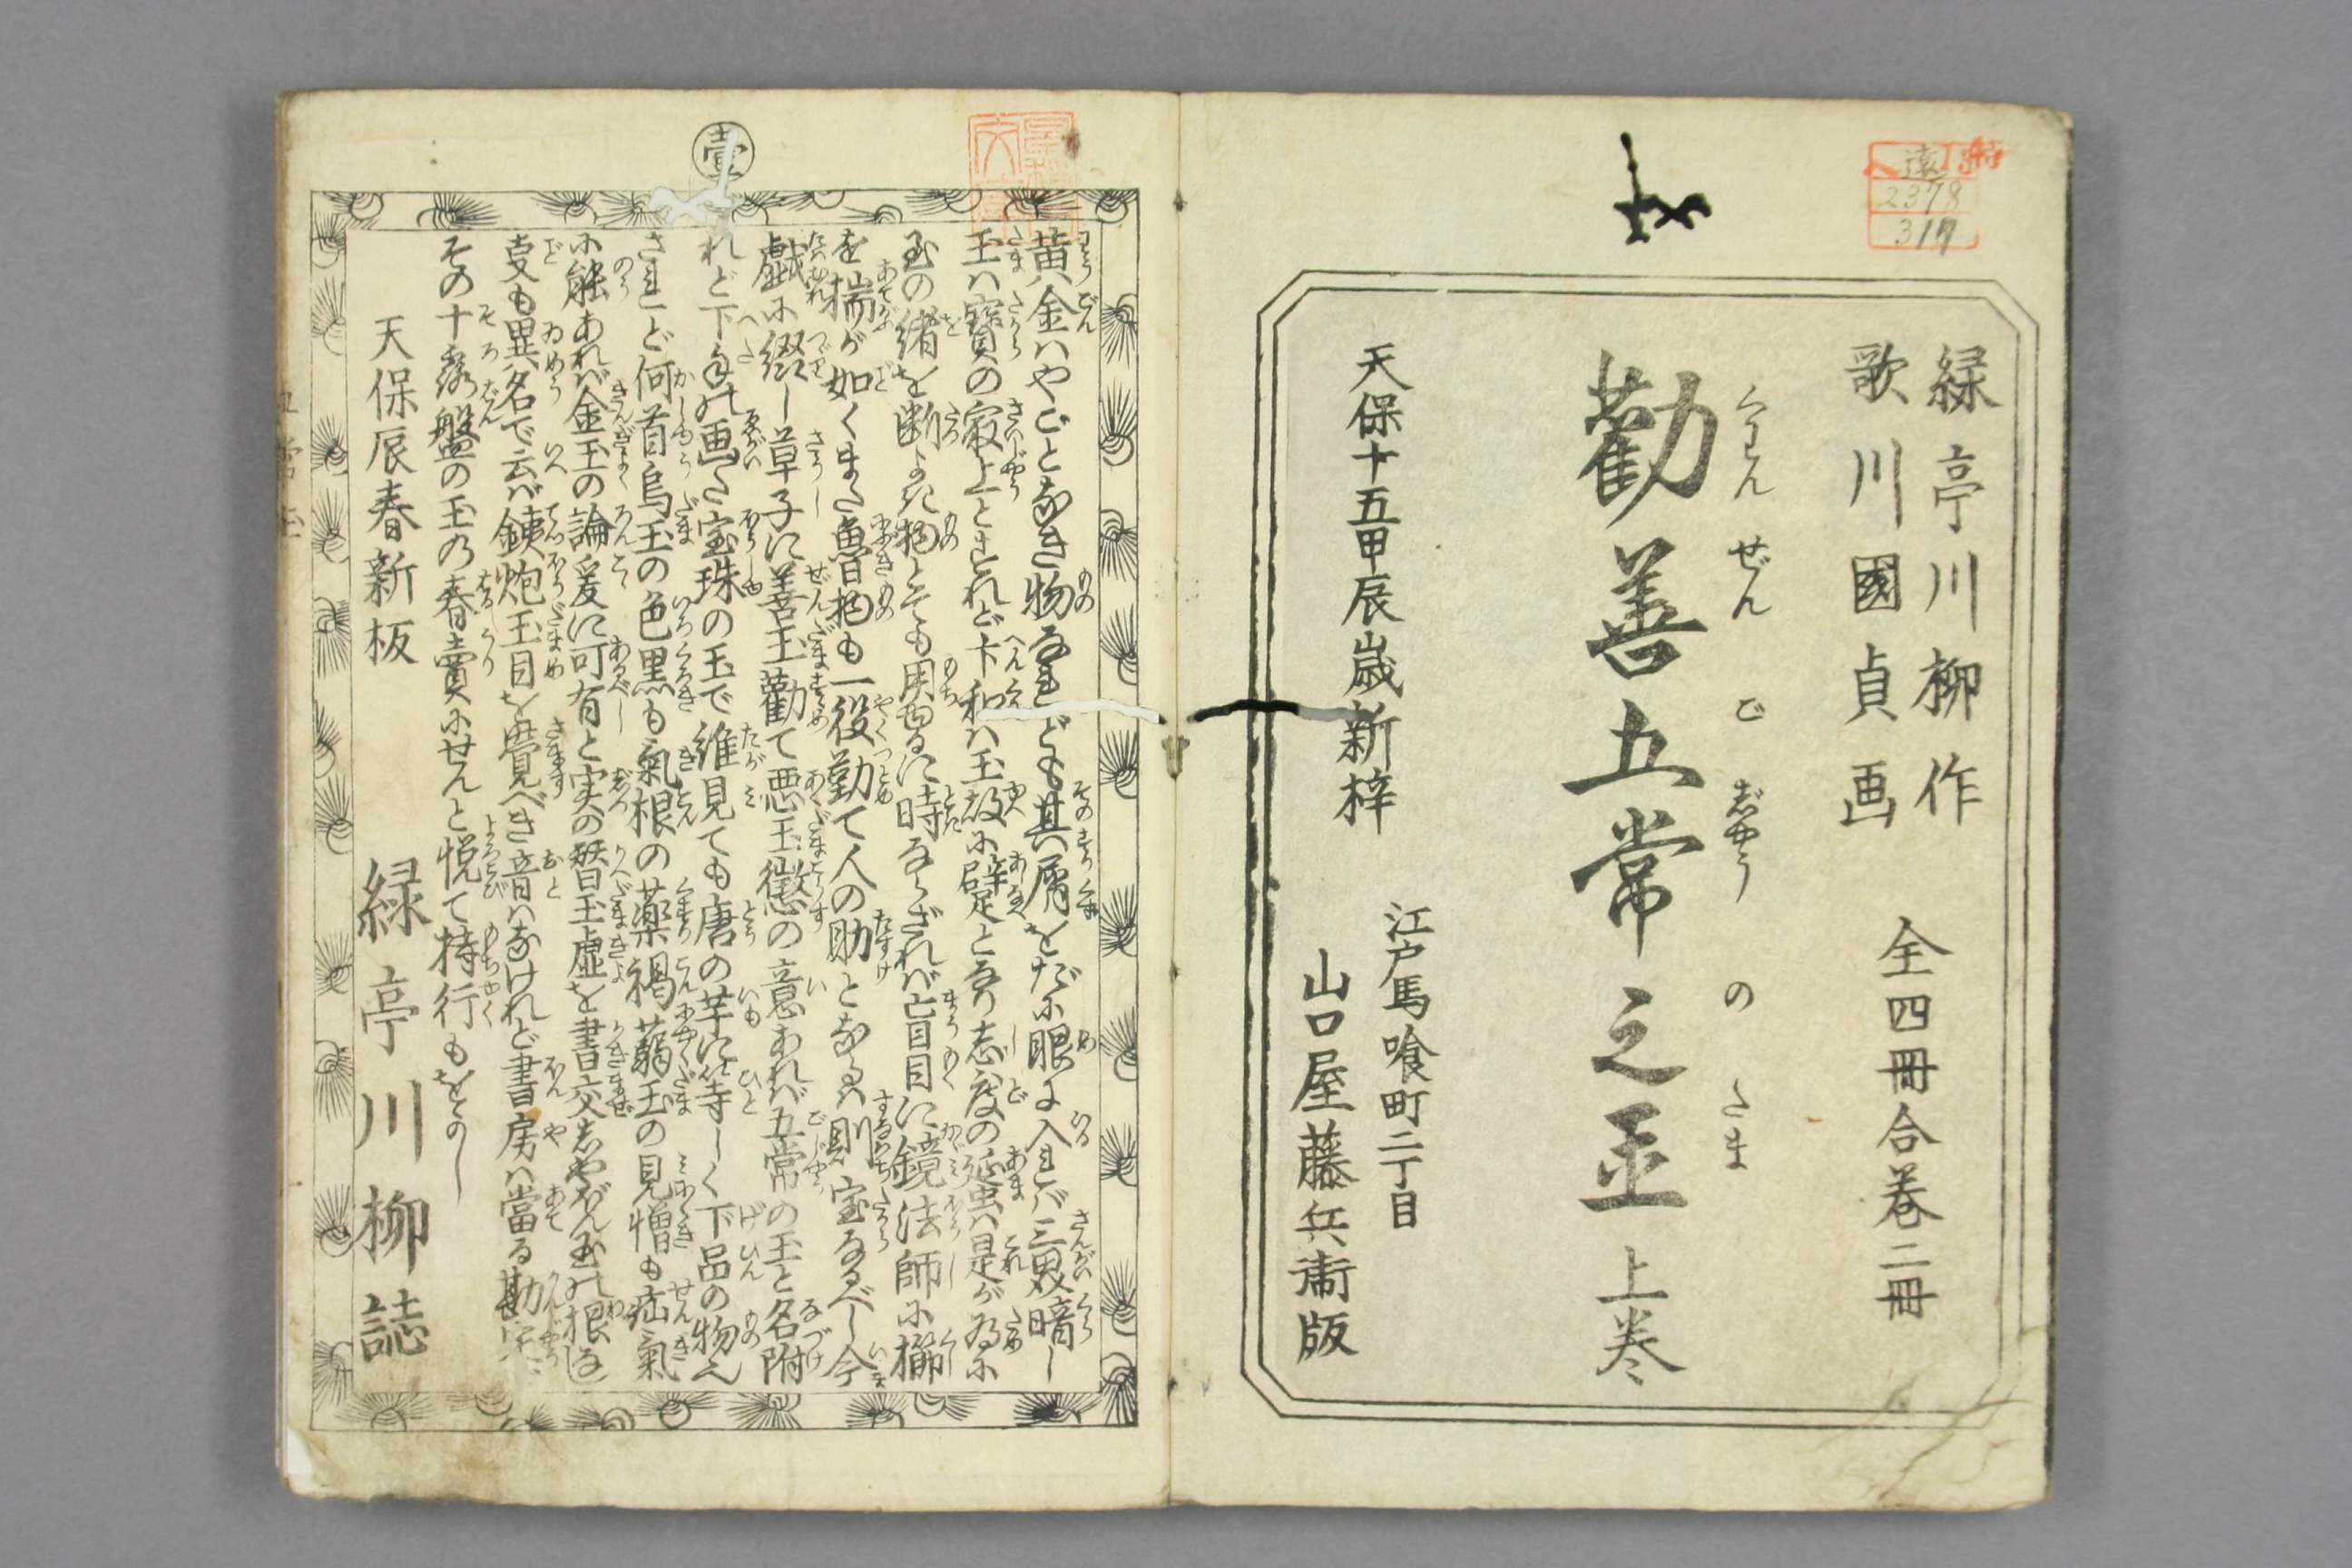 緑亭川柳作
歌川國貞画
全四冊合巻二冊
くわんぜんごじやうのたま
勸善五常之玉 上巻
天保十五甲辰歳新梓
江戸馬喰町二丁目
山口屋藤兵衛版
2378
317
壹
黄金ハやごとなき物なれども其屑をだに眼に入れバ三界暗し
玉ハ寳の最上とすれど卞和ハ玉故に躄となり志度の蜑ハ是が為に
玉の緒を断よき物とても用ゆるに時ならざれバ亡目に鏡法師に櫛
を揣が如くまた魯鈍物も一役勤て人の助となるハ則宝なるべし今
戯に綴し草子に善玉勸て悪玉懲の意あれバ五常の玉と名附
れど下手の画た宝珠の玉で誰見ても唐の芋に等しく下品の物也
されど何首烏玉の色黒も氣根の薬蒟蒻玉の見憎も疝氣
に能あれバ金玉の論爰に可有と実の替玉虚を書交しやぼん玉の根な
事も異名で云バ鉄炮玉目を覚べき音ハなけれど書房ハ當る勘定
その十露盤の玉の春賣にせんと悦て持行もをかし
天保辰春新板
緑亭川柳誌